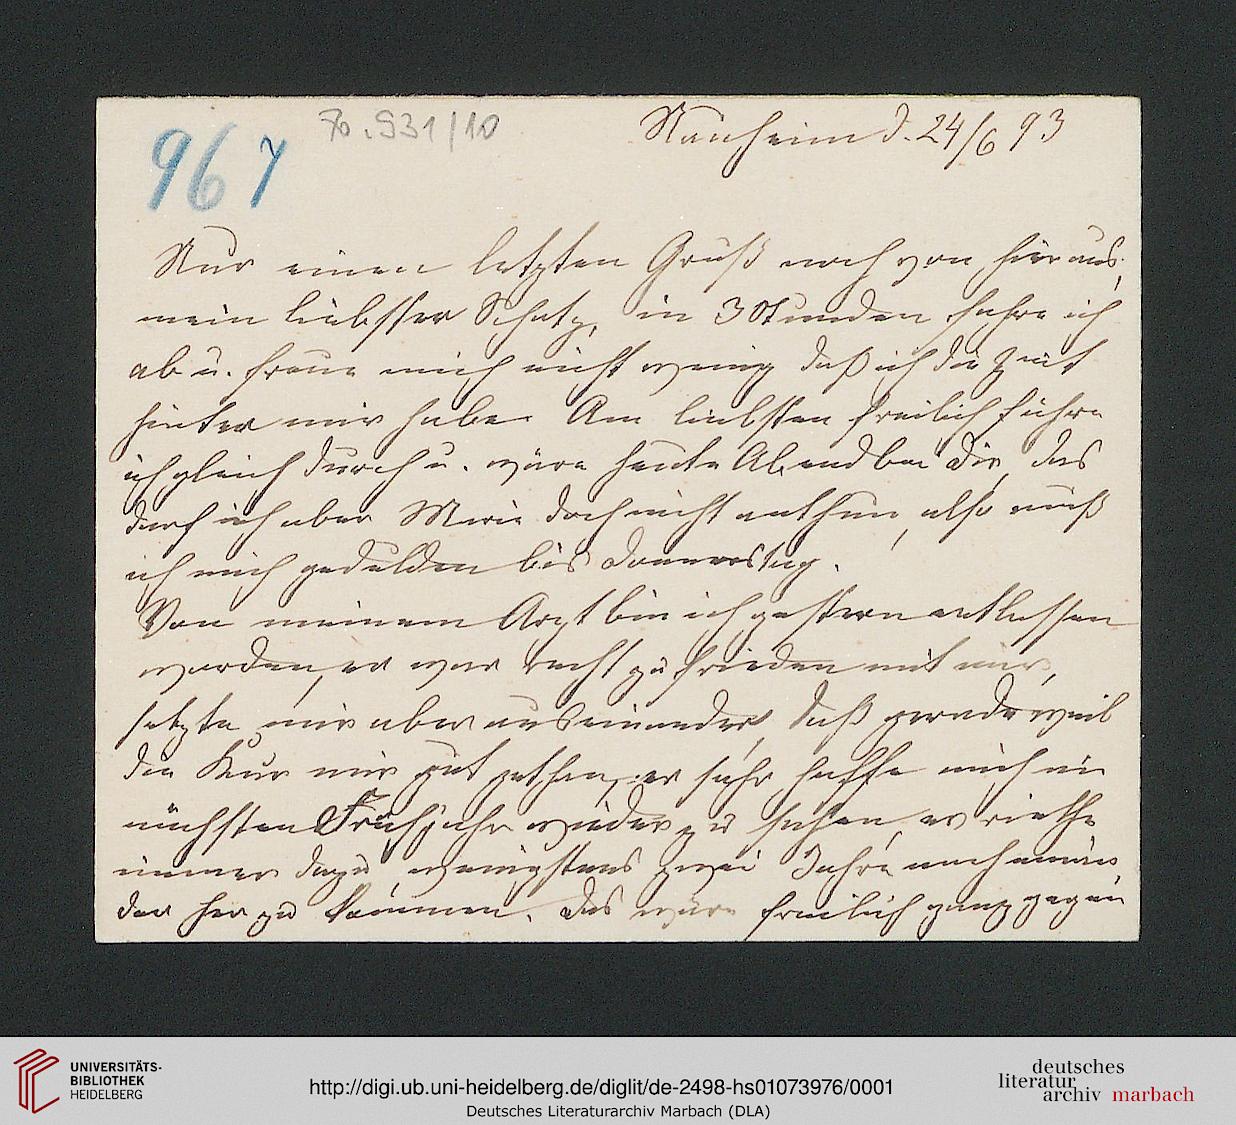 967
70.931/10
Nauheim d. 24/6 93
Nur einen letzten Gruß noch von hier aus,
mein liebster Schatz, in 3 Stunden fahre ich
ab u. freue mich nicht wenig daß ich die Zeit
hinter mir habe. Am liebsten freilich führe
ich gleich durch u. wäre heute Abend bei Dir, das
darf ich aber Marie doch nicht anthun, also muß
ich mich gedulden bis Donnerstag.
Von meinem Arzt bin ich gestern entlassen
worden, er war recht zufrieden mit mir,
setzte mir aber auseinander, daß gerade weil
die Kur mir gut gethan, er hoffe mich im
nächsten Frühjahr wieder zu sehen, er riethe
immer dazu wenigstens zwei Jahre nach einan-
der her zu kommen. Das wäre freilich ganz gegen
UNIVERSITÄTS-
BIBLIOTHEK
HEIDELBERG
http://digi.ub.uni-heidelberg.de/diglit/de-2498-hs01073976/0001
Deutsches Literaturarchiv Marbach (DLA)
deutsches
literatur
archiv marbach